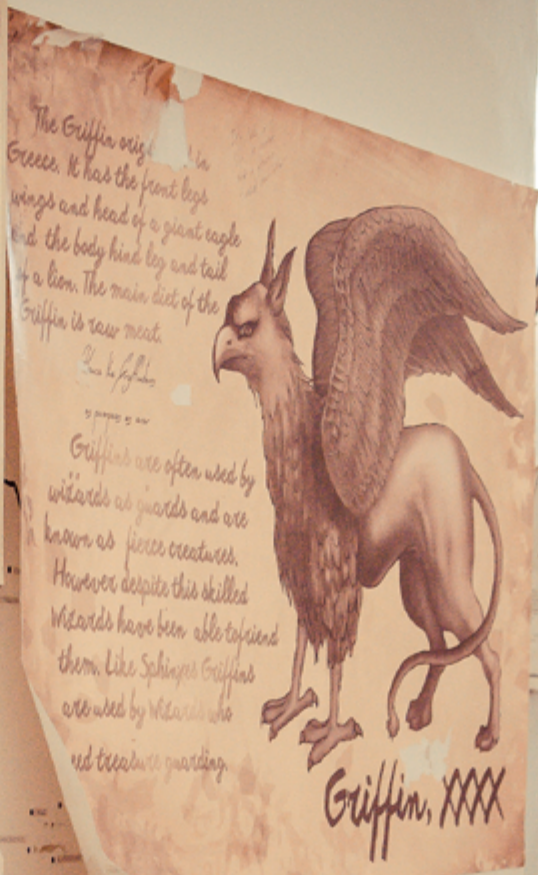 The Griffin orig in
Greece. It has the front legs
wings and head of a giant eagle
and the body hind leg and tail
of a lion. The main diet of the
Griffin is raw meat.
Griffins are often used by
wizards as guards and are
known as fierce creatures.
However despite this skilled
Wizards have been able tofriend
them. Like Sphinxes Griffins
are used by Wizards who
need treasure guarding.
Griffin, XXXX